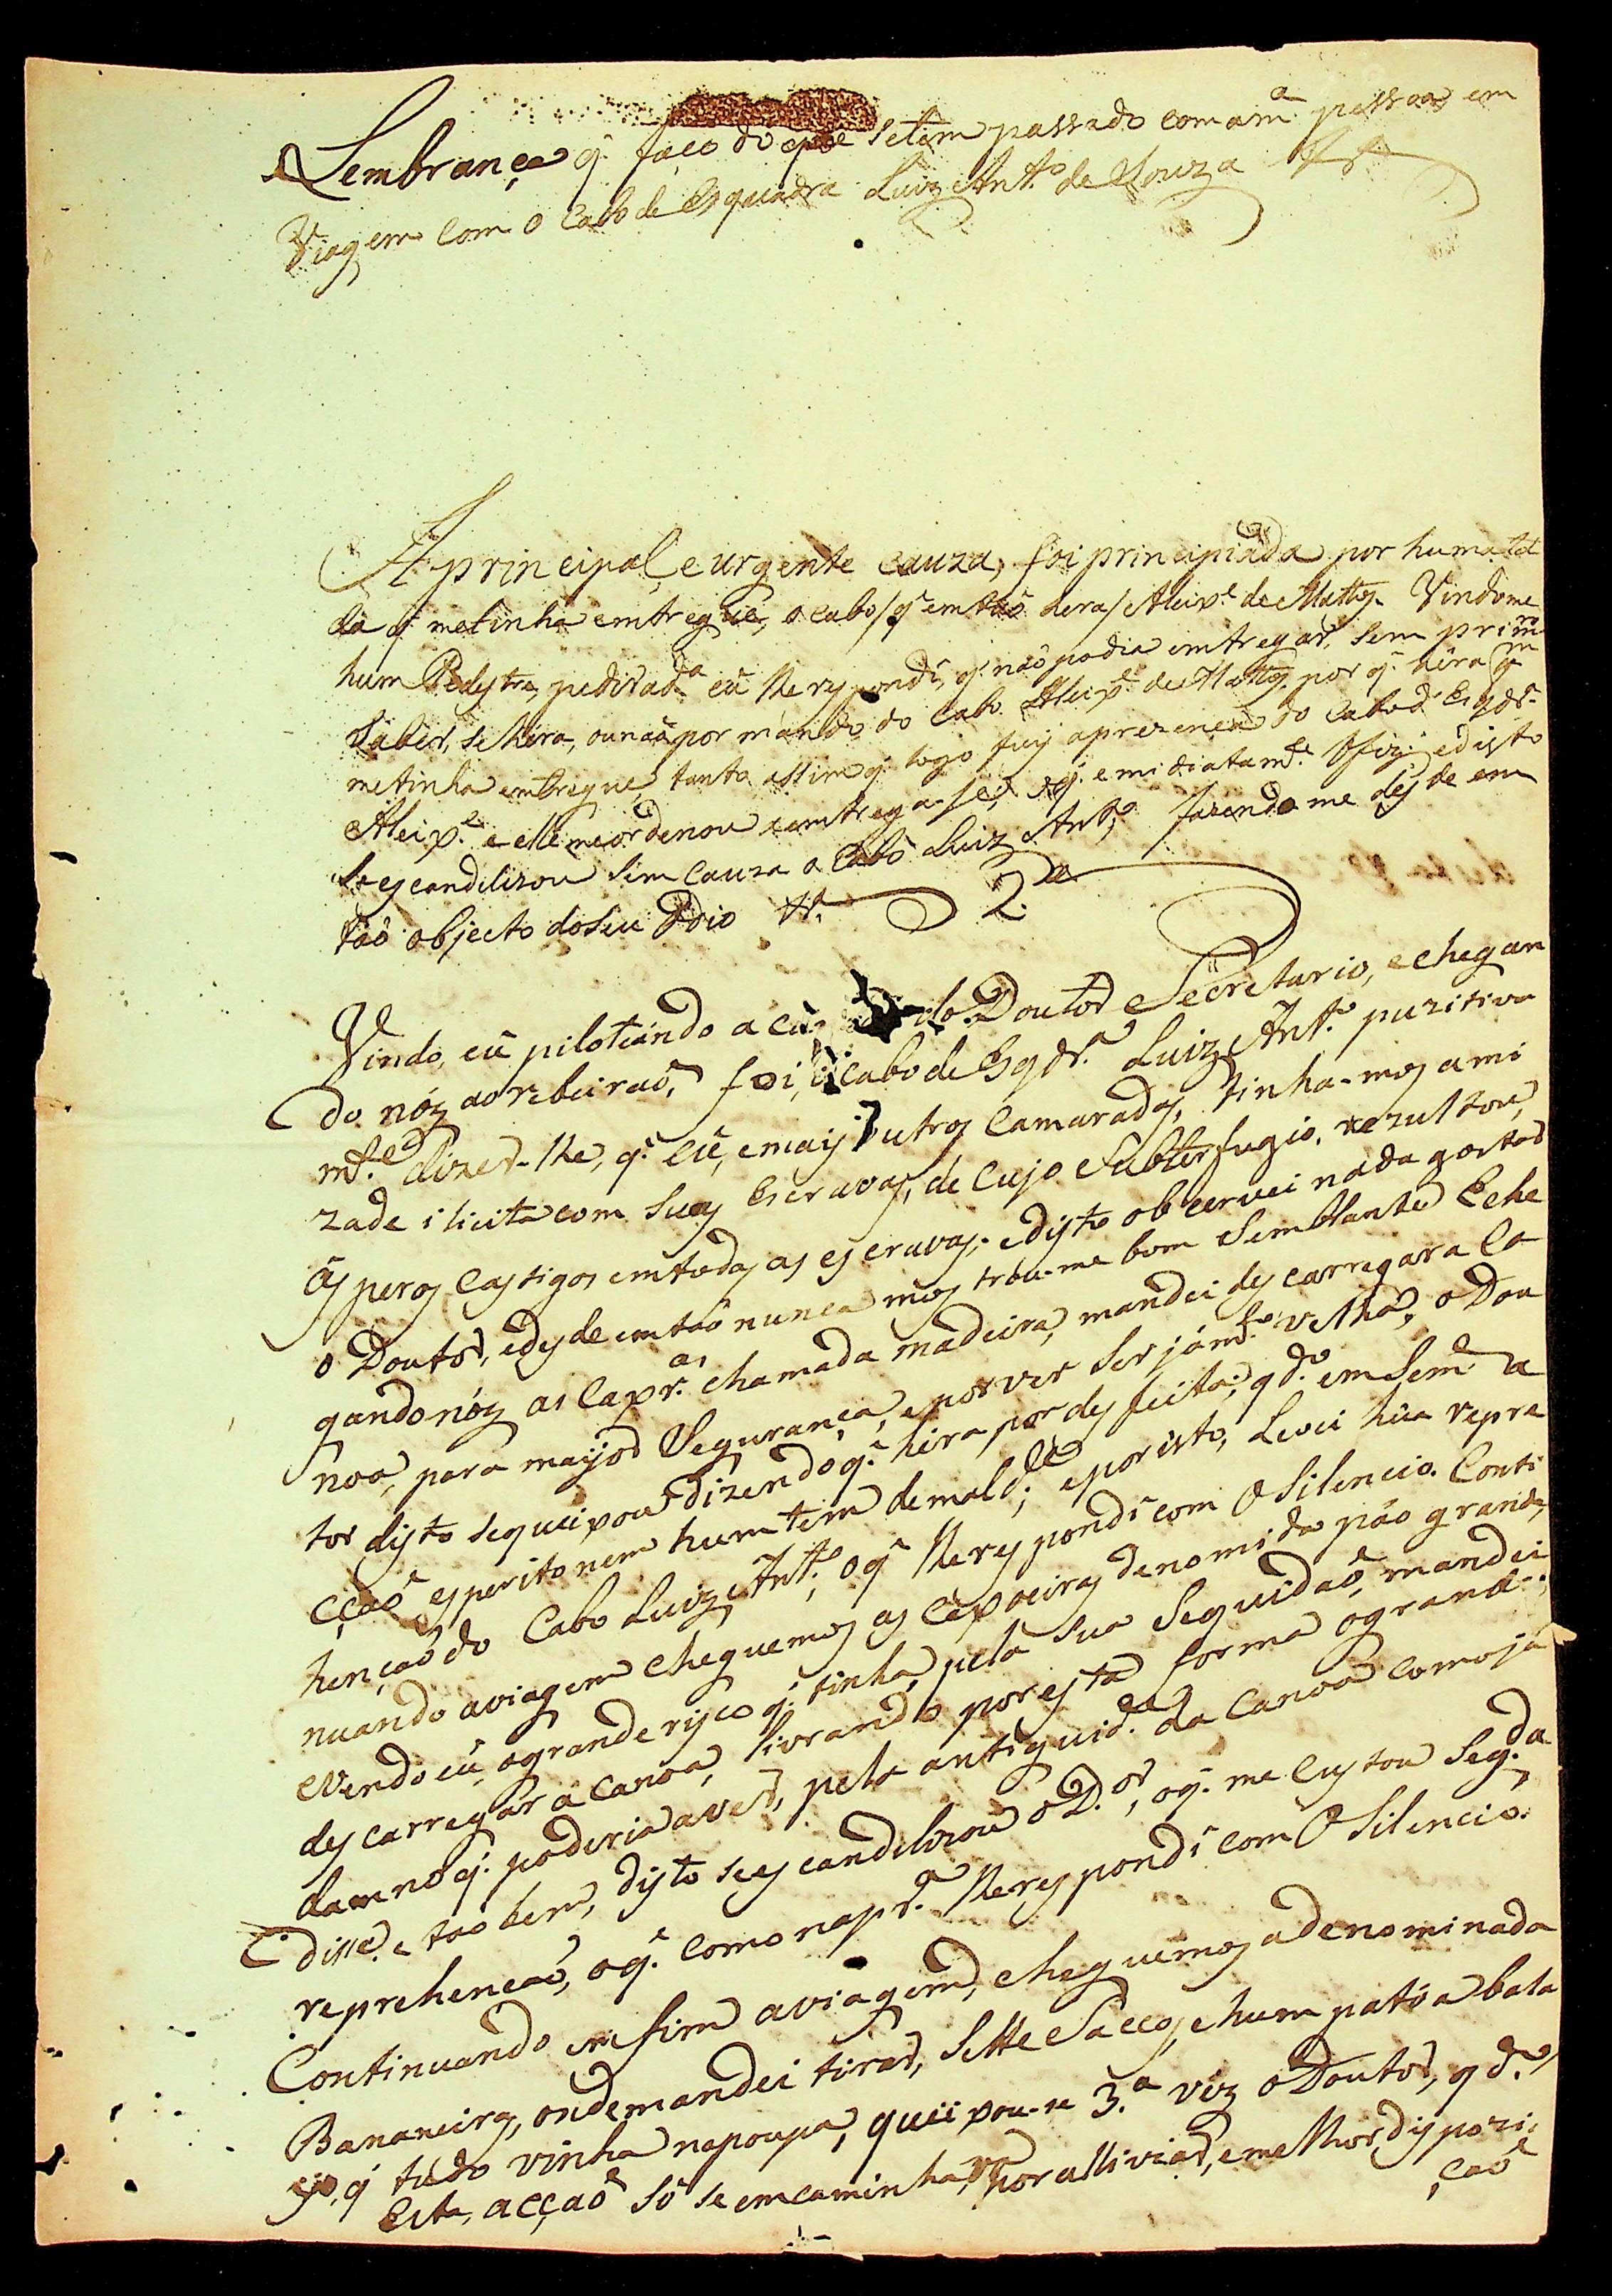 Lembrança q̃ faço do que setem passado com am.ª pessoa em
Viagem Com o Cabo de Esquadra Luiz Ant.º de Souza
A principal, e urgente cauza, foi principiada por huma tol
da q̃ metinha emtregue, o cabo /q̃ emtaõ hera/ Aleix.e de Mattos. Vindome
hum Pedystre, pedir a d.ª eũ lhe respondi, q̃ naõ podia emtregar, sem prim.ro
Saber, se hera, ou naõ por mando do Cabo Aleix.e de Mattos, por q̃ hera q.m
metinha emtregue, tanto assim q̃ logo fuy aprezença do Cabo d' Esqdr.ª
Aleix.e e elle me ordenou emtregase, o q̃ emidiatam.te o fiz; edisto
se escandilizou sem Cauza o Cabo Luiz Ant.º fazendome desde em
taõ objecto doseu Odio
2.ª
Vindo, eũ piloteando a do Doutor Secretario, e chegan
do nóz ao ribeiraõ, foi, o Cabo de Esqdr.ª Luiz Ant.º puzitiva
m.te dizer-lhe, q̃ eũ, e mais outros Camaradas, tinha-mos ami
zade ilicita com suas Escravas, de Cujo Subterfugio, rezultou,
ásperos Castigos emtodas as escravas; e disto observei nada gostar
o Doutor, e desde emtaõ nunca mos trou-me bom Semblante. Eche
gando nóz as Capr.as chamada madeira, mandei descarregar a Ca
noa, para mayor Segurança, e por ver ser já m.to velha, o Dou
tor disto se queixou dizendo q̃ hera por desfeita; qd.º em Sem.e a
cçaõ esperito nem hum tem de mald.e; e por isto, Levei hũa repre
hençaõ do Cabo Luiz Ant.º, o q̃ lhe respondi com o Silencio. Conti
nuando aviagem cheguemos as Capoeiras denomida páo grande,
e Vendo eũ, o grande risco q̃ tinha, pela sua Seguidaõ, mandei
descarregar a Canoa, livrando por esta forma o grande
damno q̃ poderia aver, pela antiguid.e da Canoa Como já
disse, e tao bem, disto se escandilizou o D.or, o q̃ me Custou seg.da
reprehençaõ, o q̃ como na pr.ª lhe respondi com o Silencio.
Continuando em fim aviagem, cheguemos a denominada
Bananeira, onde mandei tirar, sette Saccos, e hum patóa bala
yo, q̃ tudo vinha napoupa, queixou-se 3.ª vez o Doutor, qd.º
Esta, acçaõ só se emcaminhava, por alliviar, e melhor dispozi,
çaõ